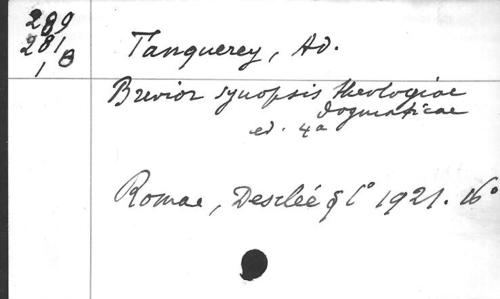 289
281
1 B
Tanquerey, Ad.
Brevior synopsis theologiae
dogmaticae
ed. 4a
Romae, Desclée & Cº 1921. 16º